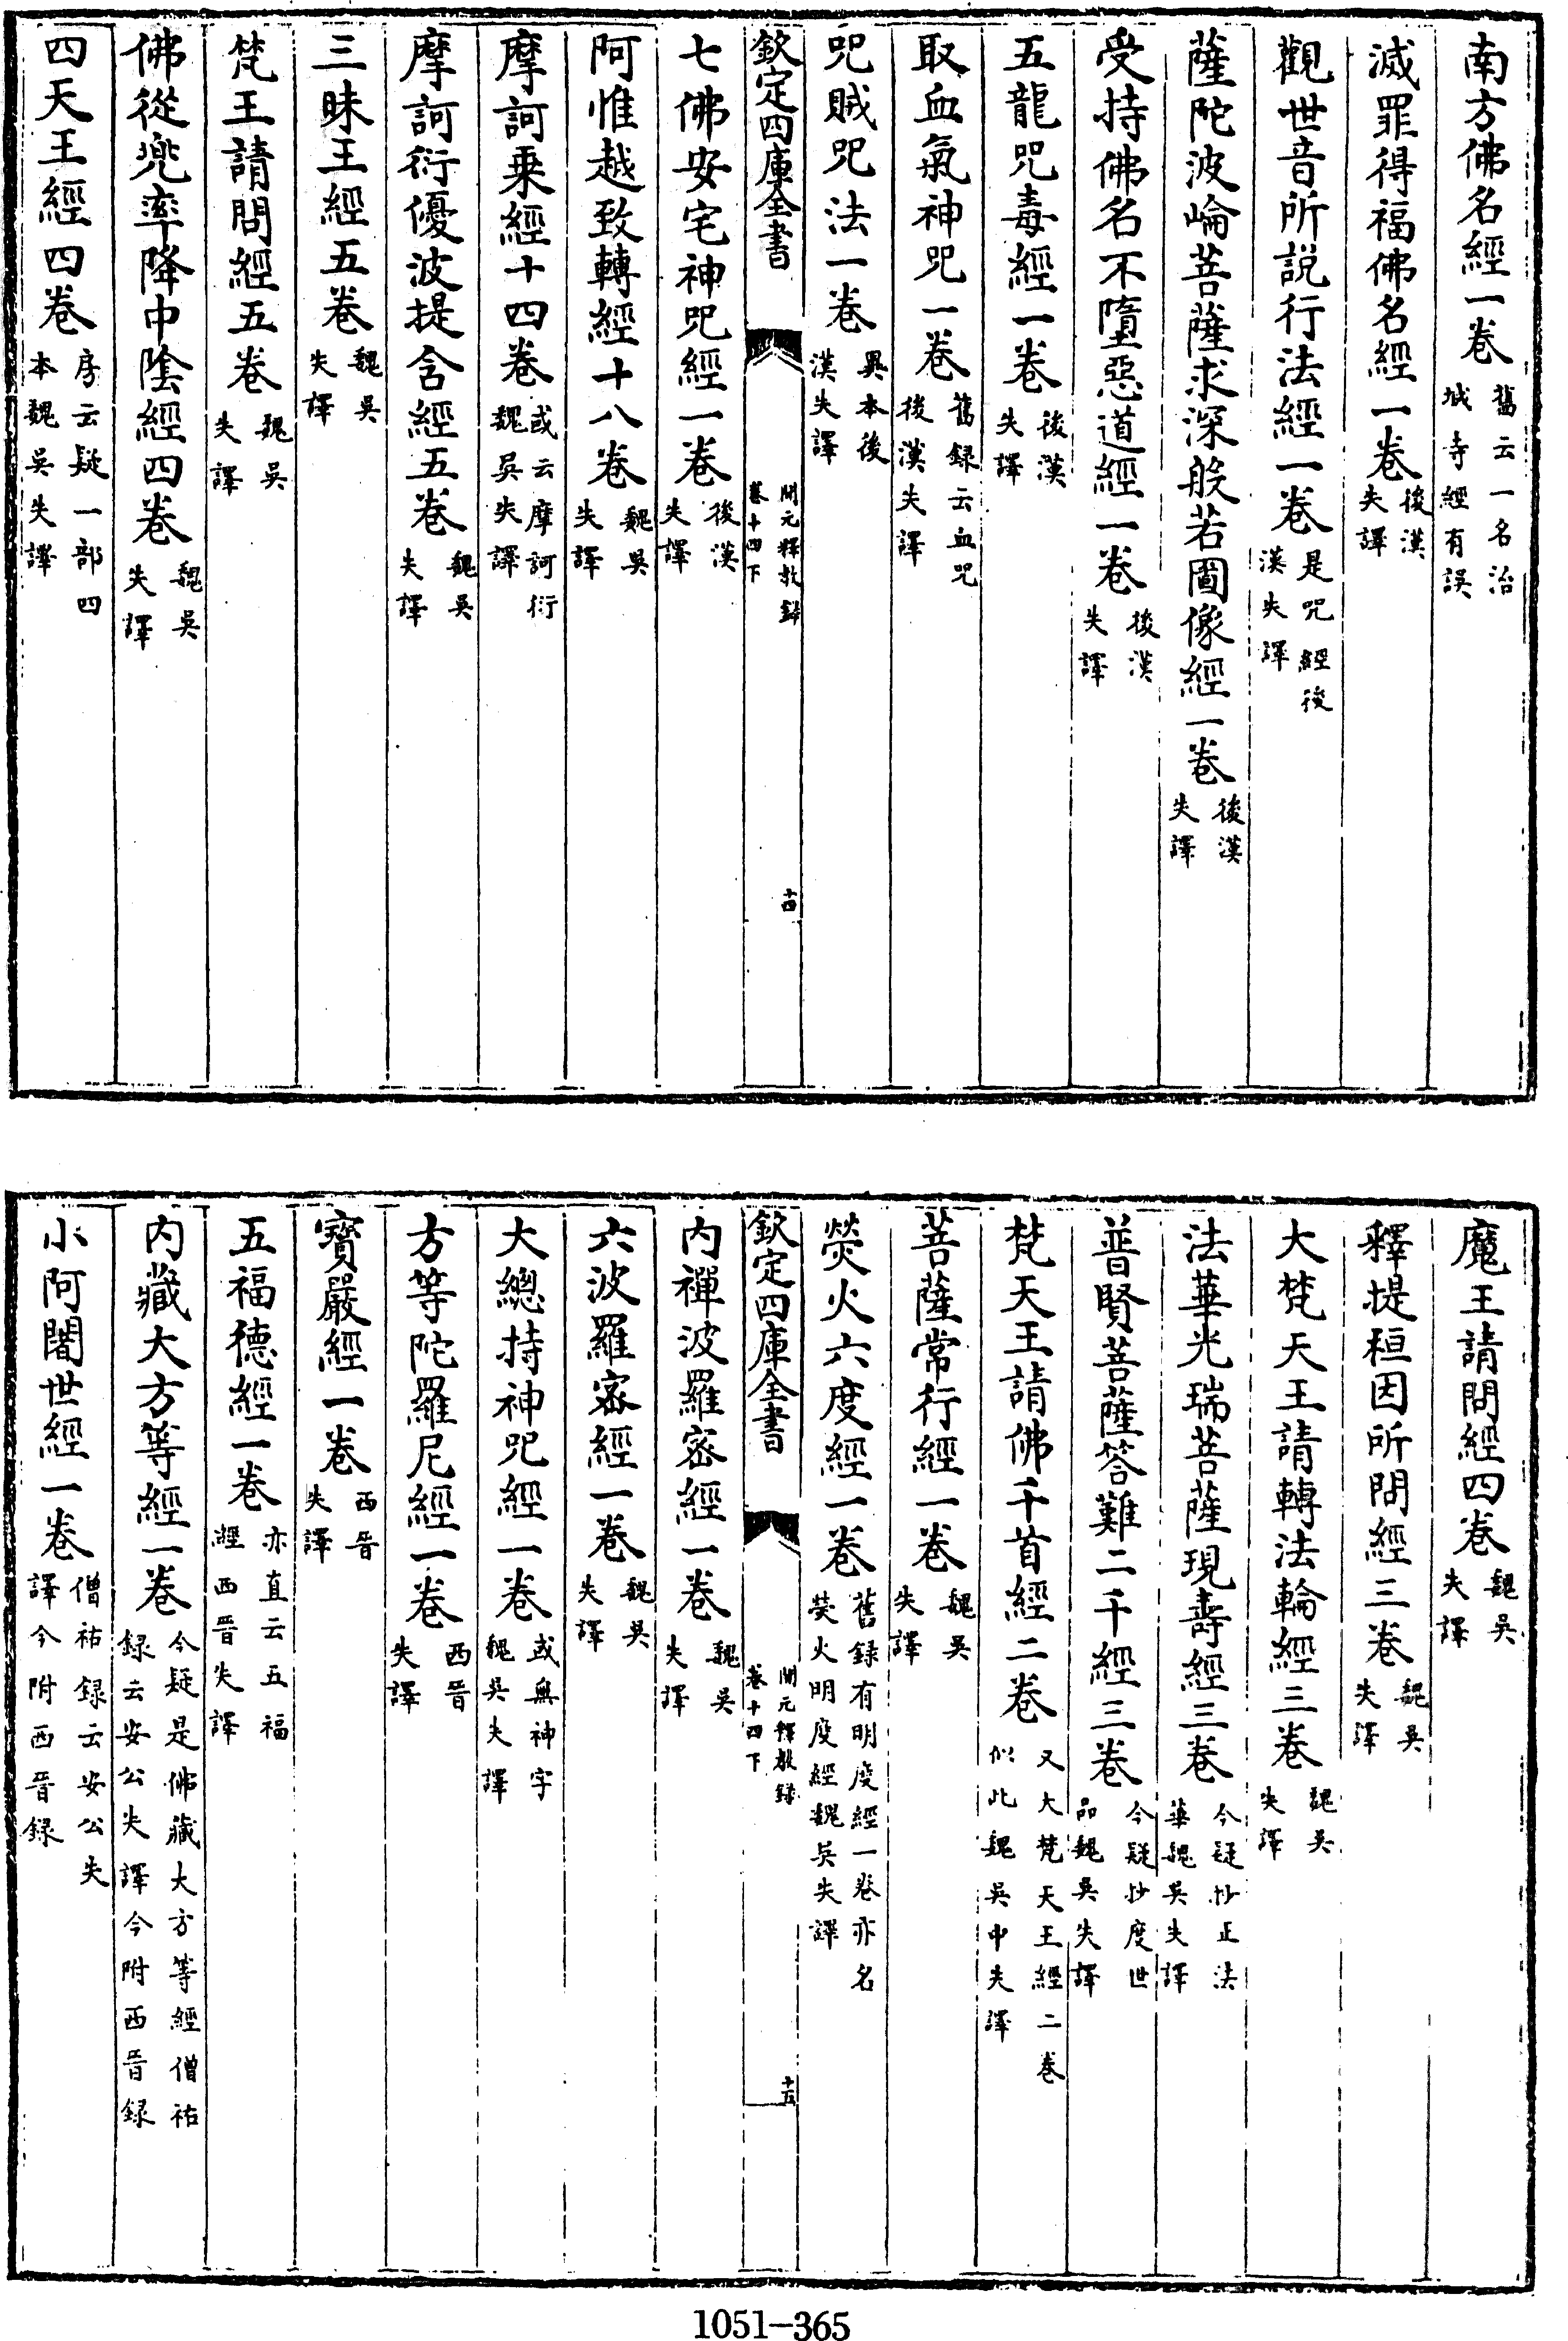 南方佛名經一卷 舊云一名治城寺經有誤
滅罪得福佛名經一卷 後漢失譯
觀世音所説行法經一卷 是咒經後漢失譯
薩陀波崘菩薩求深般若圖像經一卷 後漢失譯
受持佛名不墮惡道經一卷 後漢失譯
五龍咒毒經一卷 後漢失譯
取血氣神咒一卷 舊録云血咒後漢失譯
咒賊咒法一卷 異本後漢失譯
欽定四庫全書 開元釋教録卷十四下 十四
七佛安宅神咒經一卷 後漢失譯
阿惟越致轉經十八卷 魏吳失譯
摩訶乗經十四卷 或云摩訶衍魏吳失譯
摩訶衍優波提含經五卷 魏吳失譯
三昧王經五卷 魏吳失譯
梵王請問經五卷 魏吳失譯
佛從兜率降中陰經四卷 魏吳失譯
四天王經四卷 房云疑一部四本魏吳失譯
魔王請問經四卷 魏吳失譯
釋提桓因所問經三卷 魏吳失譯
大梵天王請轉法輪經三卷 魏吳失譯
法華光瑞菩薩現壽經三卷 今疑抄正法華魏吳失譯
普賢菩薩答難二千經三卷 今疑抄度世品魏吳失譯
梵天王請佛千首經二卷 又大梵天王經二卷似此魏吳中失譯
菩薩常行經一卷 魏吳失譯
熒火六度經一卷 舊録有明度經一卷亦名熒火明度經魏吳失譯
欽定四庫全書 開元釋教録卷十四下 十五
内禪波羅宻經一卷 魏吳失譯
六波羅宻經一卷 魏吳失譯
大總持神咒經一卷 或無神字魏吳失譯
方等陀羅尼經一卷 西晉失譯
寳嚴經一卷 西晉失譯
五福德經一卷 亦直云五福經西晉失譯
内藏大方等經一卷 今疑是佛藏大方等經僧祐録云安公失譯今附西晉録
小阿闍世經一卷 僧祐録云安公失譯今附西晉録
1051-365